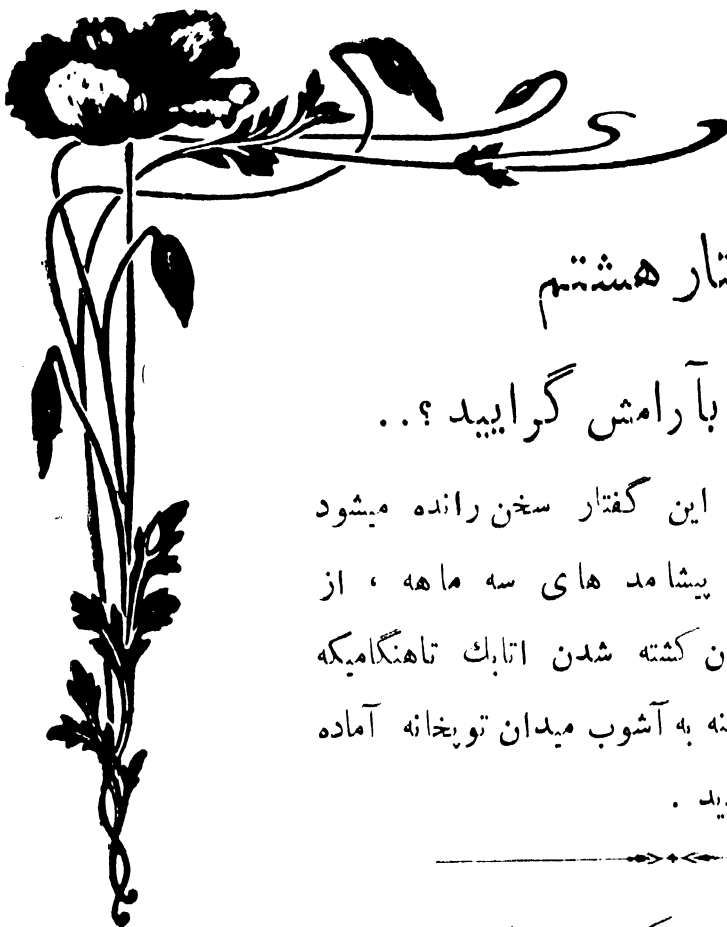 تار هشتم
بآرامش گرایید ؟..
این گفتار سخن رانده میشود
پیشامد های سه ماهه ، از
ن کشته شدن اتابك تاهنگامیکه
نه به آشوب میدان توپخانه آماده
ید .